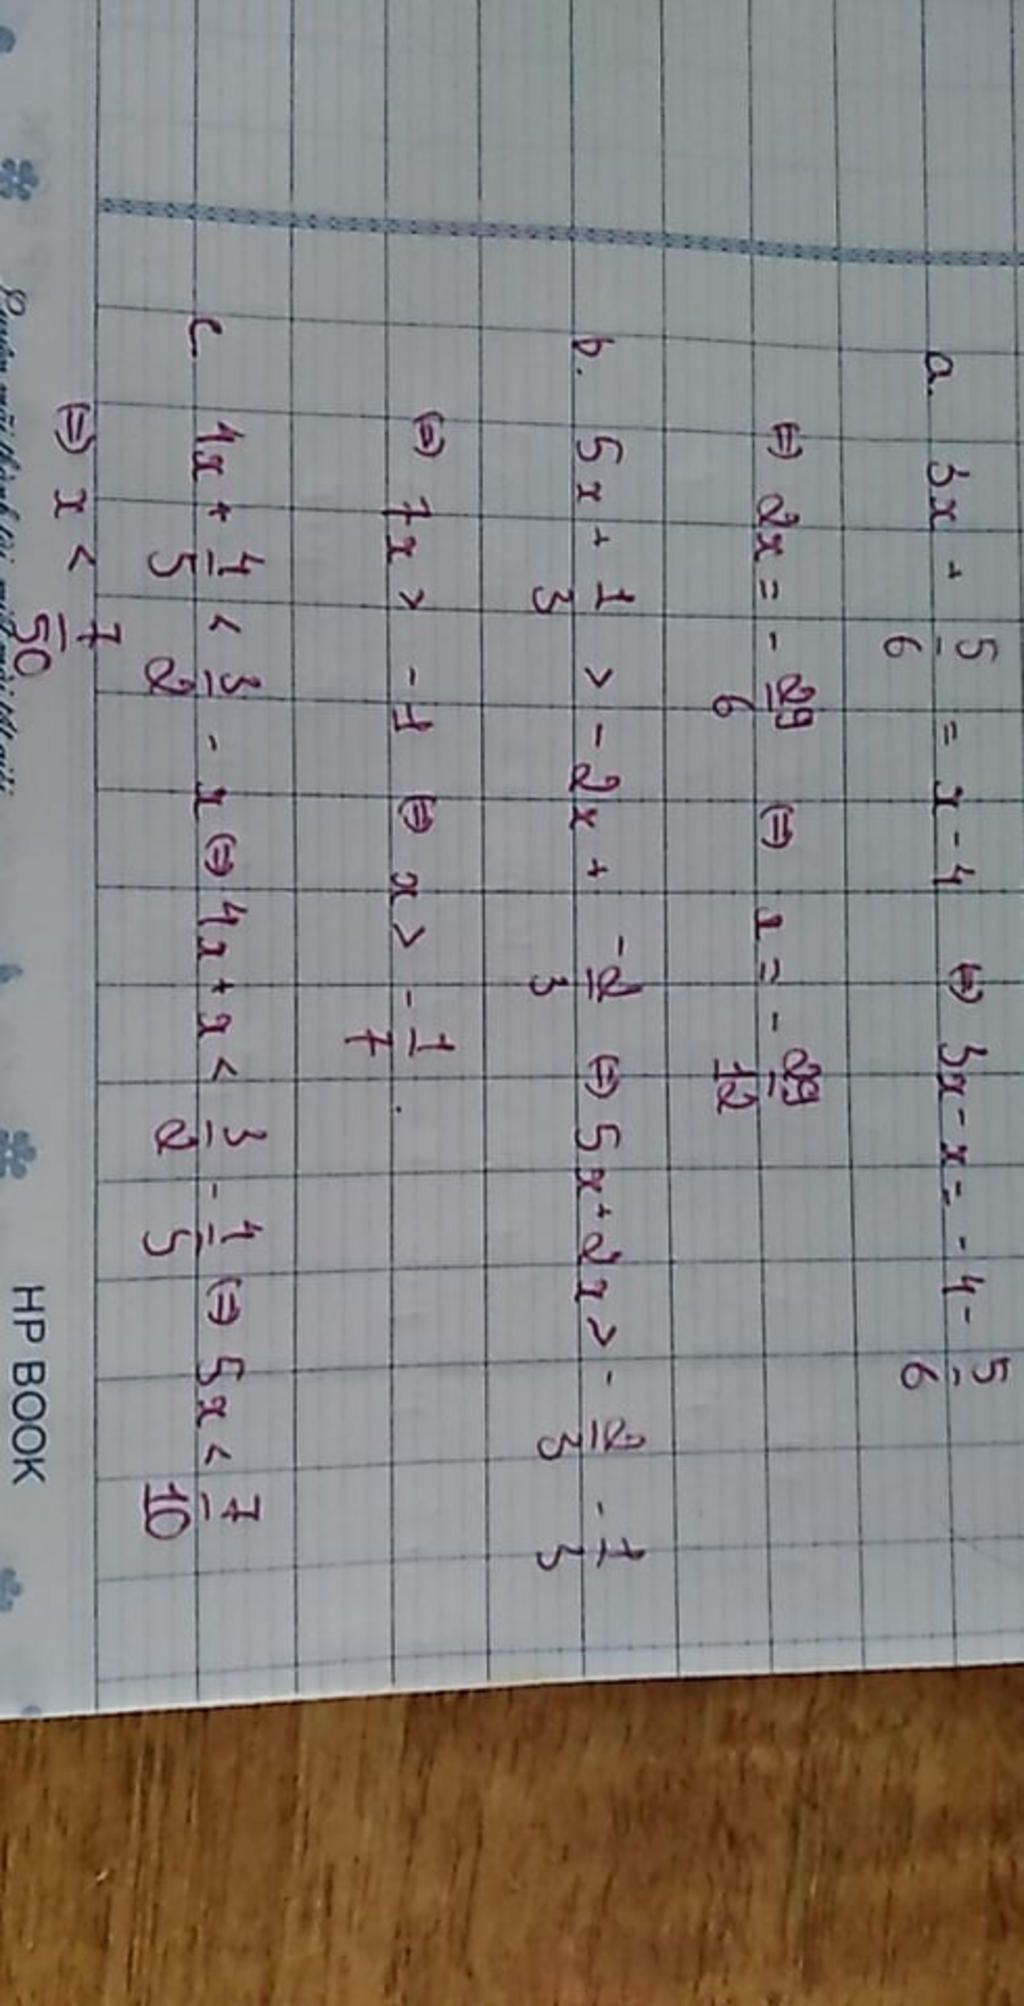 a. 3x + 5/6 = x - 4 (=) 3x - x = - 4 - 5/6
(=) 2x = - 29/6 (=) x = - 29/12
b. 5x + 1/3 > - 2x + -2/3 (=) 5x + 2x > - 2/3 - 1/3
(=) 7x > - 1 (=) x > - 1/7 .
c. 4x + 4/5 < 3/2 - x (=) 4x + x < 3/2 - 4/5 (=) 5x < 7/10
(=) x < 7/50
HP BOOK